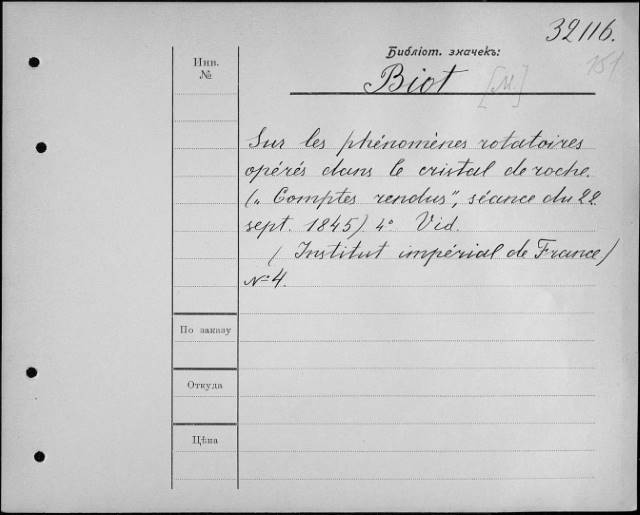 32116.
Библіот. значекъ:
Инв.
№
Biot [M.]
151
Sur les phénomènes rotatoires
opérés dans le cristal de roche.
(„Comptes rendus", séance du 22
sept. 1845) 4° Vid.
(Institut impérial de France)
№ 4.
По заказу
Откуда
Цѣна